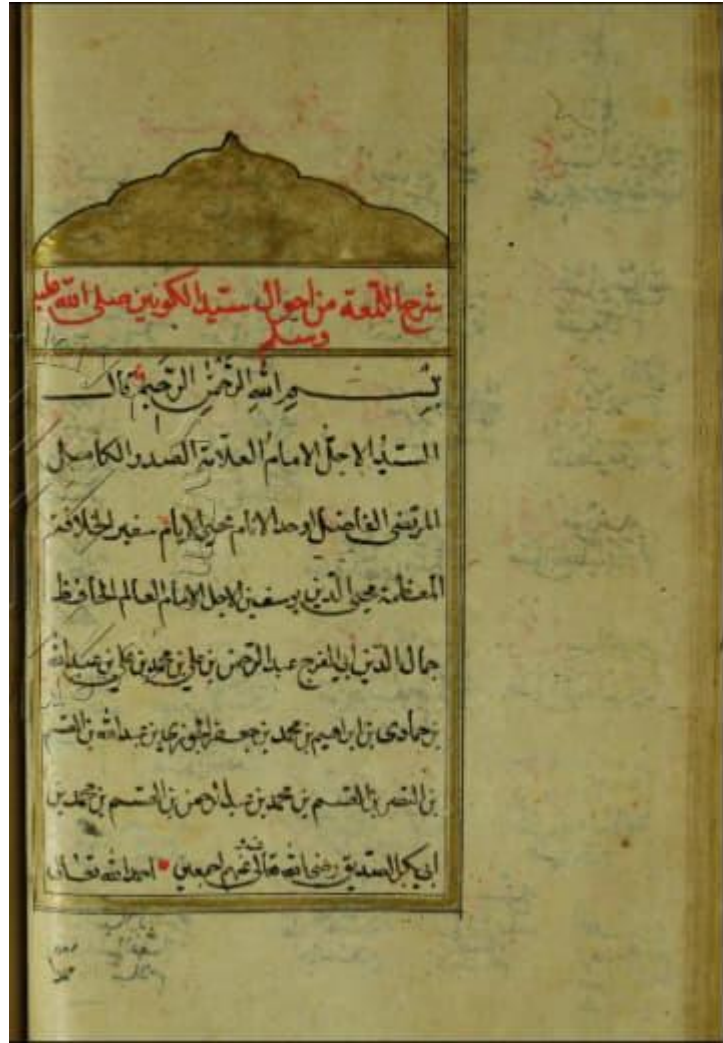 شرح اللمعة من احوال سيد الكونين صلى الله عليه
وسلم
بسم الله الرحمن الرحيم قال
السيد الاجل الامام العلامة الصدر الكامل
المرتضى الفاضل اوحد الانام محيي الايام سفير الخلافة
المعظمة محيي الدين يوسف بن الاجل الامام العالم الحافظ
جمال الدين ابي الفرج عبد الرحمن بن علي بن محمد بن علي بن عبد الله
بن حمادى بن ابراهيم بن محمد بن جعفر الجوزي بن عبد الله بن القسم
بن النصر بن القسم بن محمد بن عبد الرحمن بن القسم بن محمد بن
ابي بكر الصديق رضي الله تعالى عنهم اجمعين احمد الله تعالى